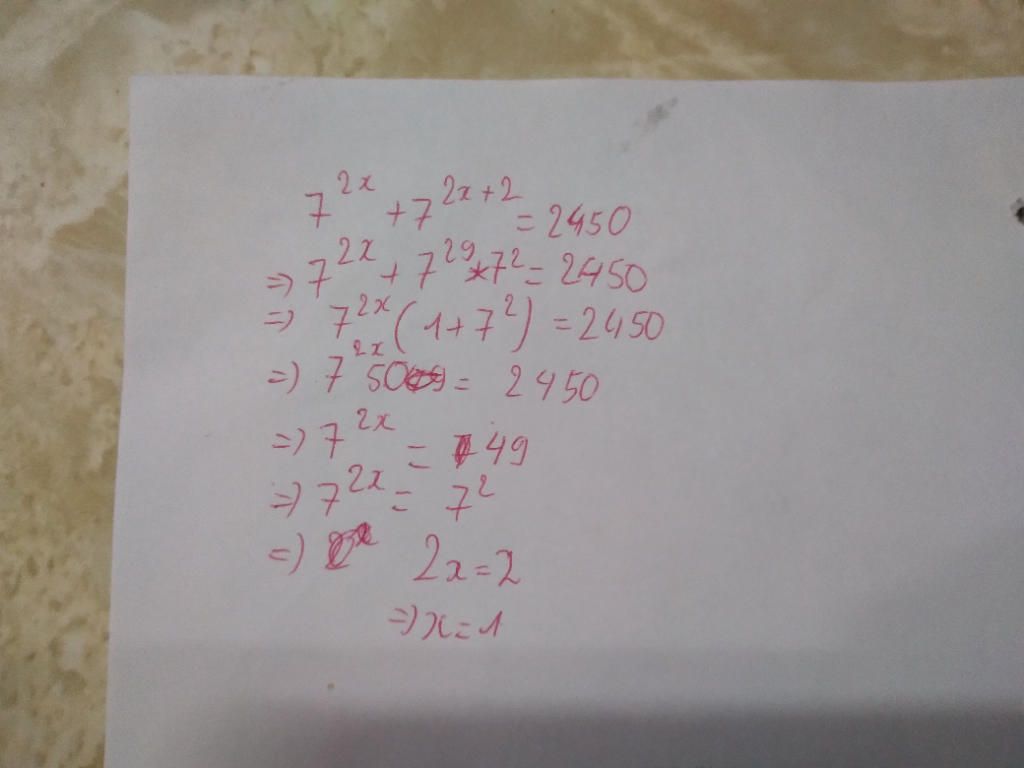 7^{2x} + 7^{2x+2} = 2450
=) 7^{2x} + 7^{29} * 7^2 = 2450
=) 7^{2x} (1 + 7^2) = 2450
=) 7^{2x} 50 = 2450
=) 7^{2x} = 49
=) 7^{2x} = 7^2
=) 2x = 2
=) x = 1